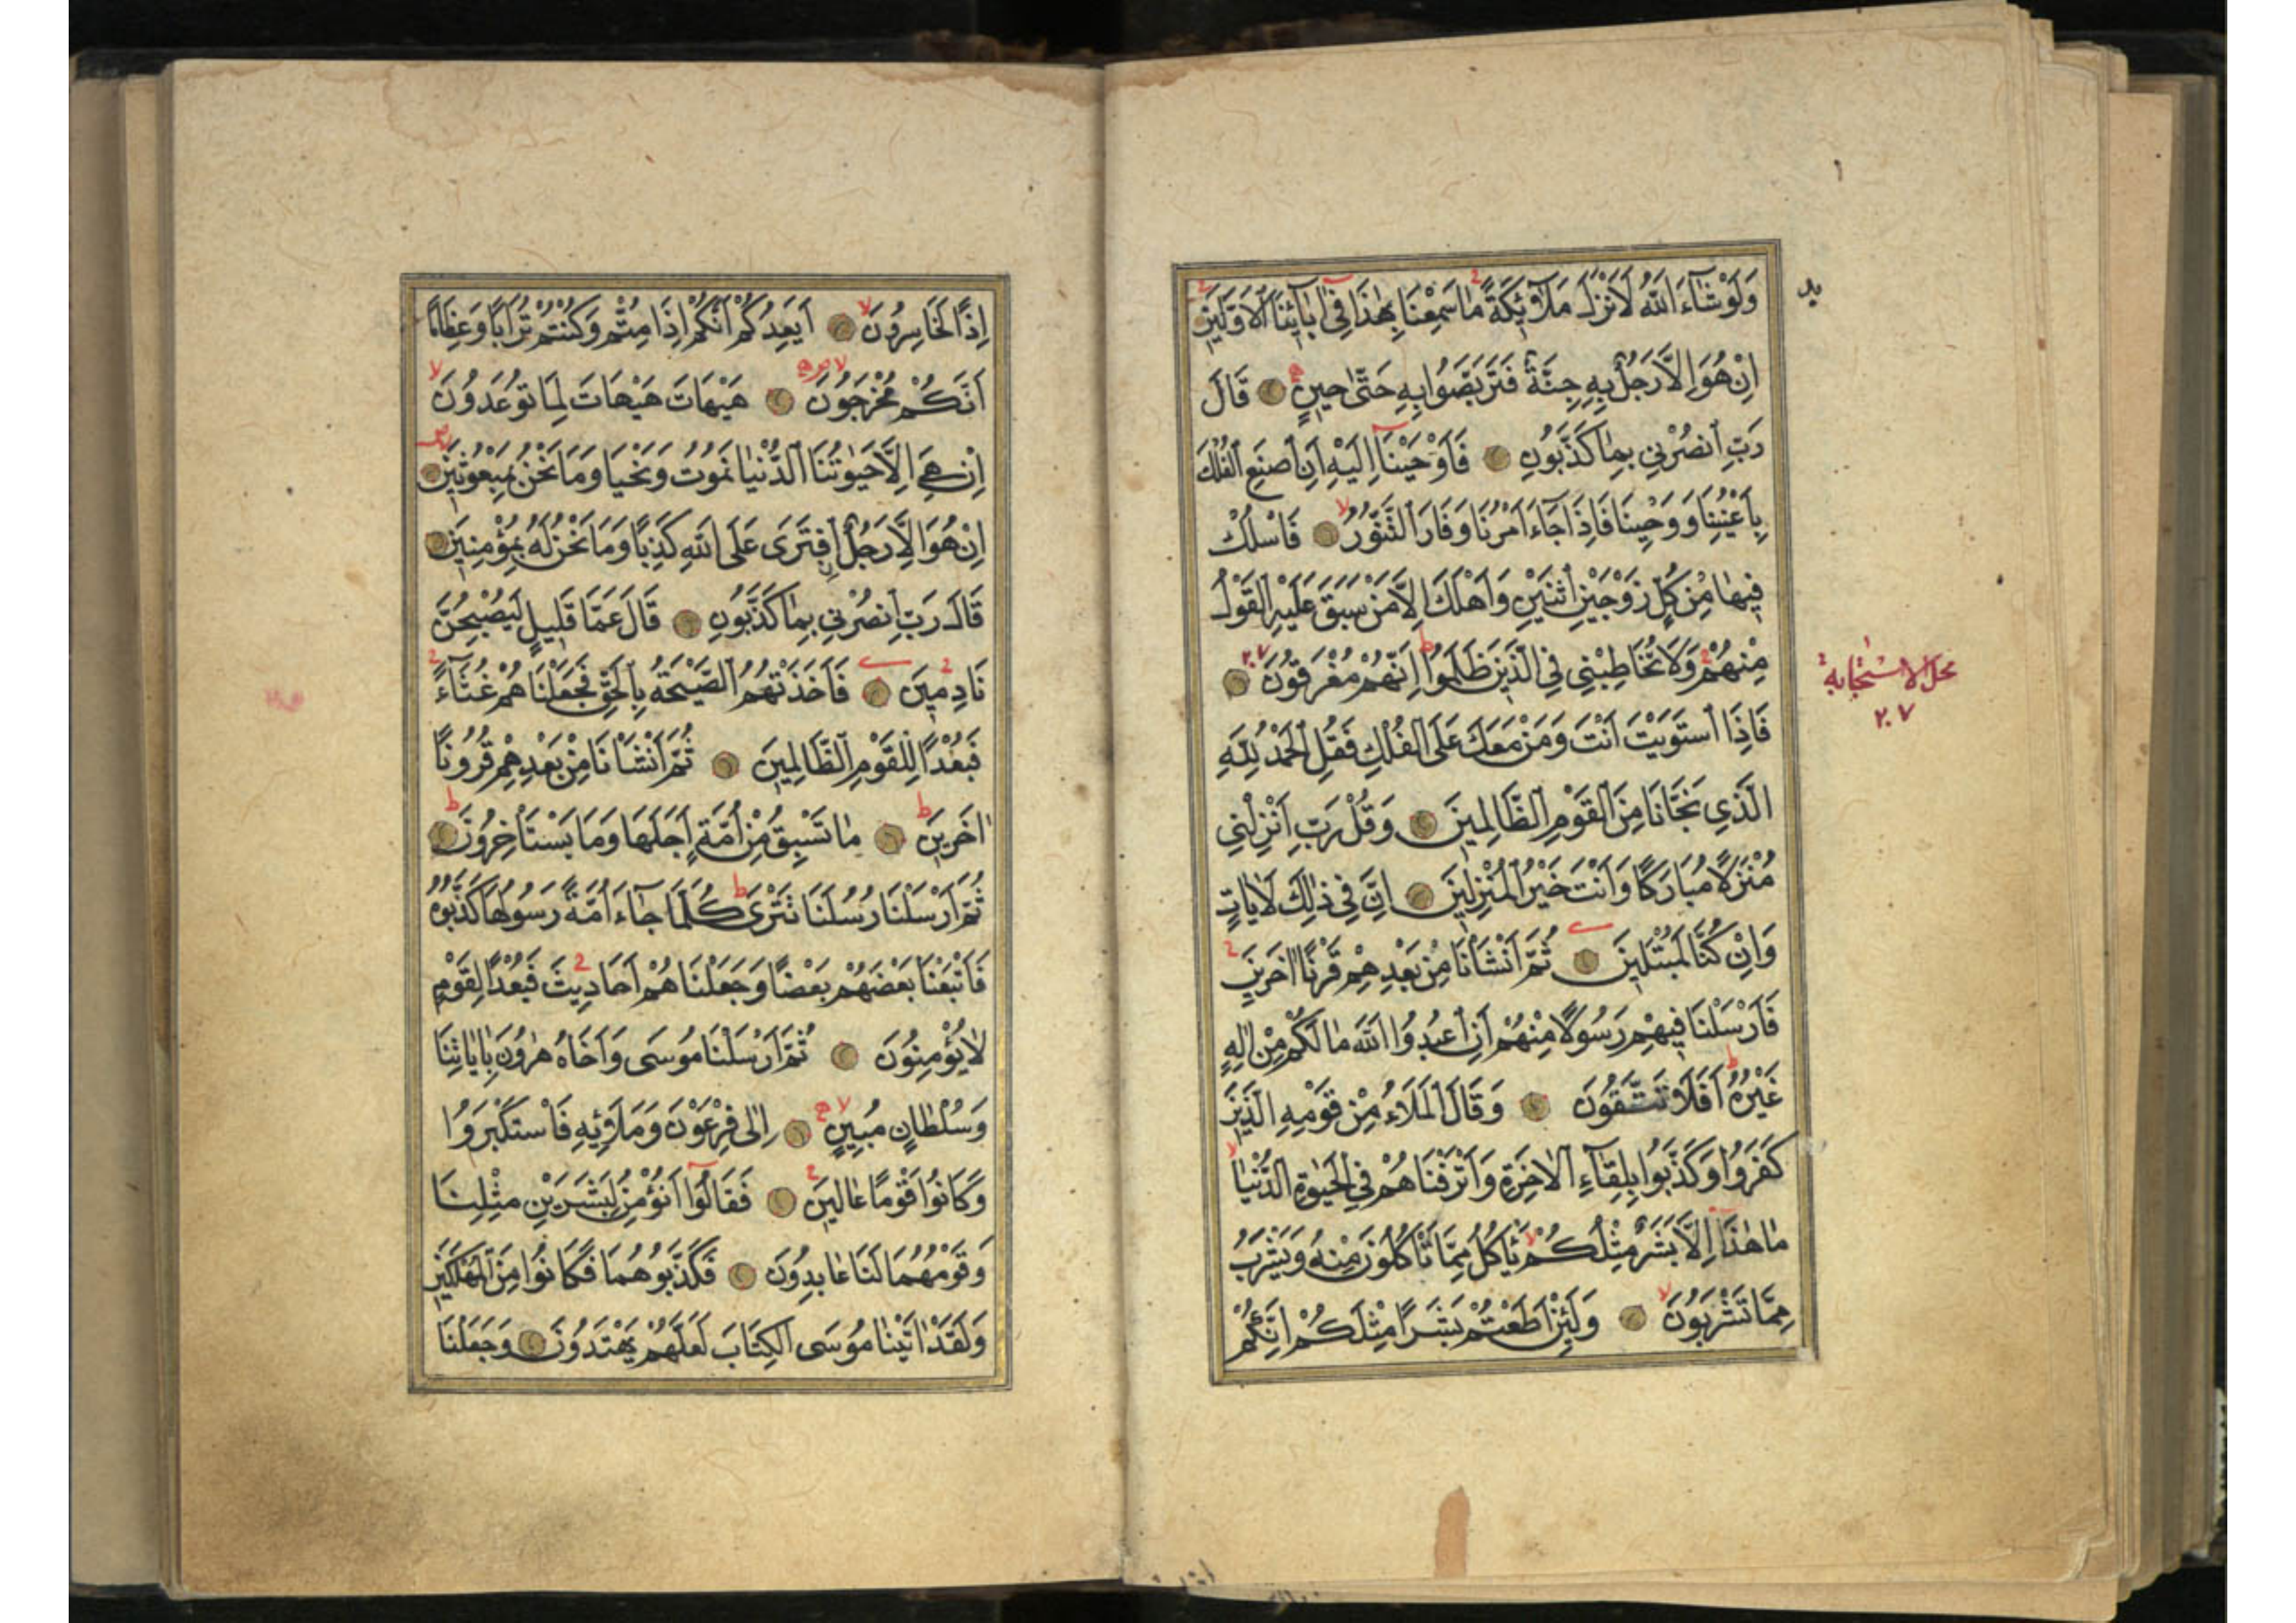 وَلَوْ شَاءَ اللّٰهُ لَاَنْزَلَ مَلٰٓئِكَةً مَا سَمِعْنَا بِهٰذَا فِٓي اٰبَٓائِنَا الْاَوَّلِينَ
اِنْ هُوَ اِلَّا رَجُلٌ بِهِ جِنَّةٌ فَتَرَبَّصُوا بِهِ حَتّٰى حِينٍ قَالَ
رَبِّ انْصُرْنِي بِمَا كَذَّبُونِ فَاَوْحَيْنَٓا اِلَيْهِ اَنِ اصْنَعِ الْفُلْكَ
بِاَعْيُنِنَا وَوَحْيِنَا فَاِذَا جَٓاءَ اَمْرُنَا وَفَارَ التَّنُّورُ فَاسْلُكْ
فِيهَا مِنْ كُلٍّ زَوْجَيْنِ اثْنَيْنِ وَاَهْلَكَ اِلَّا مَنْ سَبَقَ عَلَيْهِ الْقَوْلُ
مِنْهُمْ وَلَا تُخَاطِبْنِي فِي الَّذِينَ ظَلَمُوا اِنَّهُمْ مُغْرَقُونَ
فَاِذَا اسْتَوَيْتَ اَنْتَ وَمَنْ مَعَكَ عَلَى الْفُلْكِ فَقُلِ الْحَمْدُ لِلّٰهِ
الَّذِي نَجَّانَا مِنَ الْقَوْمِ الظَّالِمِينَ وَقُلْ رَبِّ اَنْزِلْنِي
مُنْزَلًا مُبَارَكًا وَاَنْتَ خَيْرُ الْمُنْزِلِينَ اِنَّ فِي ذٰلِكَ لَاٰيَاتٍ
وَاِنْ كُنَّا لَمُبْتَلِينَ ثُمَّ اَنْشَاْنَا مِنْ بَعْدِهِمْ قَرْنًا اٰخَرِينَ
فَاَرْسَلْنَا فِيهِمْ رَسُولًا مِنْهُمْ اَنِ اعْبُدُوا اللّٰهَ مَا لَكُمْ مِنْ اِلٰهٍ
غَيْرُهُ اَفَلَا تَتَّقُونَ وَقَالَ الْمَلَاُ مِنْ قَوْمِهِ الَّذِينَ
كَفَرُوا وَكَذَّبُوا بِلِقَٓاءِ الْاٰخِرَةِ وَاَتْرَفْنَاهُمْ فِي الْحَيٰوةِ الدُّنْيَا
مَا هٰذَٓا اِلَّا بَشَرٌ مِثْلُكُمْ يَاْكُلُ مِمَّا تَاْكُلُونَ مِنْهُ وَيَشْرَبُ
مِمَّا تَشْرَبُونَ وَلَئِنْ اَطَعْتُمْ بَشَرًا مِثْلَكُمْ اِنَّكُمْ
محل الاستجابة
٢٠٧
اِذًا لَخَاسِرُونَ اَيَعِدُكُمْ اَنَّكُمْ اِذَا مِتُّمْ وَكُنْتُمْ تُرَابًا وَعِظَامًا
اَنَّكُمْ مُخْرَجُونَ هَيْهَاتَ هَيْهَاتَ لِمَا تُوعَدُونَ
اِنْ هِيَ اِلَّا حَيٰوتُنَا الدُّنْيَا نَمُوتُ وَنَحْيَا وَمَا نَحْنُ بِمَبْعُوثِينَ
اِنْ هُوَ اِلَّا رَجُلٌ افْتَرٰى عَلَى اللّٰهِ كَذِبًا وَمَا نَحْنُ لَهُ بِمُؤْمِنِينَ
قَالَ رَبِّ انْصُرْنِي بِمَا كَذَّبُونِ قَالَ عَمَّا قَلِيلٍ لَيُصْبِحُنَّ
نَادِمِينَ فَاَخَذَتْهُمُ الصَّيْحَةُ بِالْحَقِّ فَجَعَلْنَاهُمْ غُثَٓاءً
فَبُعْدًا لِلْقَوْمِ الظَّالِمِينَ ثُمَّ اَنْشَاْنَا مِنْ بَعْدِهِمْ قُرُونًا
اٰخَرِينَ مَا تَسْبِقُ مِنْ اُمَّةٍ اَجَلَهَا وَمَا يَسْتَاْخِرُونَ
ثُمَّ اَرْسَلْنَا رُسُلَنَا تَتْرٰى كُلَّمَا جَٓاءَ اُمَّةً رَسُولُهَا كَذَّبُوهُ
فَاَتْبَعْنَا بَعْضَهُمْ بَعْضًا وَجَعَلْنَاهُمْ اَحَادِيثَ فَبُعْدًا لِقَوْمٍ
لَا يُؤْمِنُونَ ثُمَّ اَرْسَلْنَا مُوسٰى وَاَخَاهُ هٰرُونَ بِاٰيَاتِنَا
وَسُلْطَانٍ مُبِينٍ اِلٰى فِرْعَوْنَ وَمَلَا۬ئِهِ فَاسْتَكْبَرُوا
وَكَانُوا قَوْمًا عَالِينَ فَقَالُٓوا اَنُؤْمِنُ لِبَشَرَيْنِ مِثْلِنَا
وَقَوْمُهُمَا لَنَا عَابِدُونَ فَكَذَّبُوهُمَا فَكَانُوا مِنَ الْمُهْلَكِينَ
وَلَقَدْ اٰتَيْنَا مُوسَى الْكِتَابَ لَعَلَّهُمْ يَهْتَدُونَ وَجَعَلْنَا